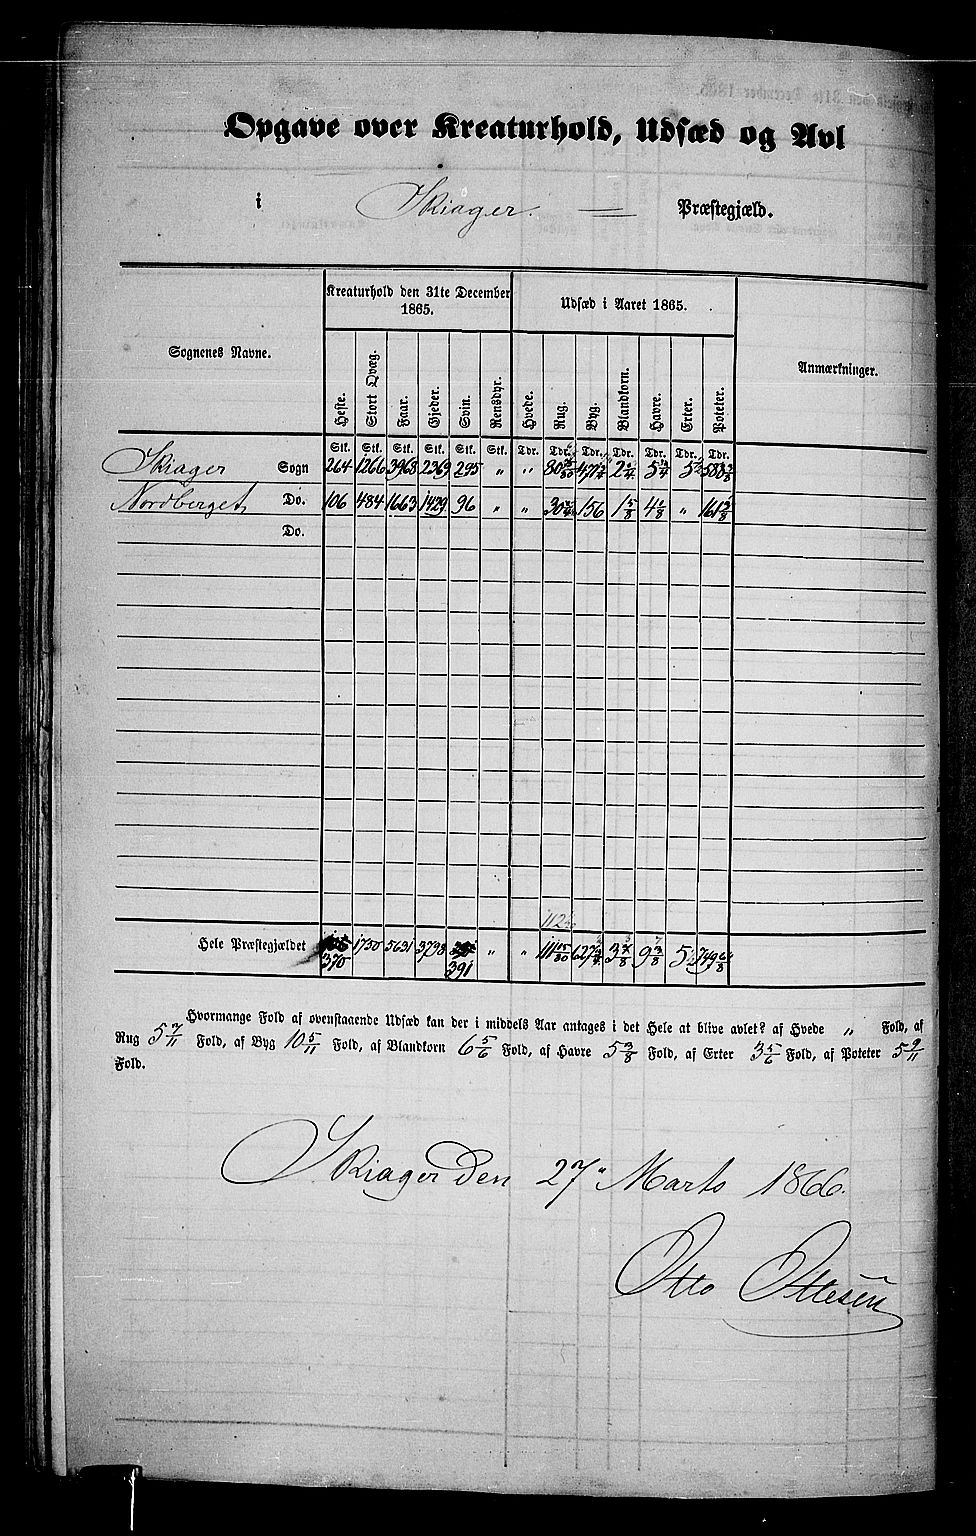 Opgave over Kreaturhold, Udsæd og Avl
i Skiager. Præstegjæld.
Sognenes Navne.
Kreaturhold den 31te December 1865.
Udsæd i Aaret 1865.
Anmærkninger.
Heste. Stort Qvæg. Faar. Gjeder. Svin. Rensdyr. Hvede. Rug. Byg. Blandkorn. Havre. Erter. Poteter.
Stk. Stk. Stk. Stk. Stk. Stk. Tdr. Tdr. Tdr. Tdr. Tdr. Tdr. Tdr.
Skiager Sogn 264 1266 3968 2369 295 " " 2 1/4 5 3/4
Nordberget Do. 106 484 1663 1429 96 " " 156 1 5/8 4 1/8 "
Do.
Hele Præstegjældet 370 1750 5631 3798 391 " " 3 7/8 9 3/8
Hvormange Fold af ovenstaaende Udsæd kan der i middels Aar antages i det Hele at blive avlet? af Hvede " Fold, af
Rug 5 7/11 Fold, af Byg 10 5/11 Fold, af Blandkorn 6 5/6 Fold, af Havre 5 3/8 Fold, af Erter 3 5/6 Fold, af Poteter 5 9/11
Fold.
Skiager Den 27" Marts 1866.
Otto Ottesen